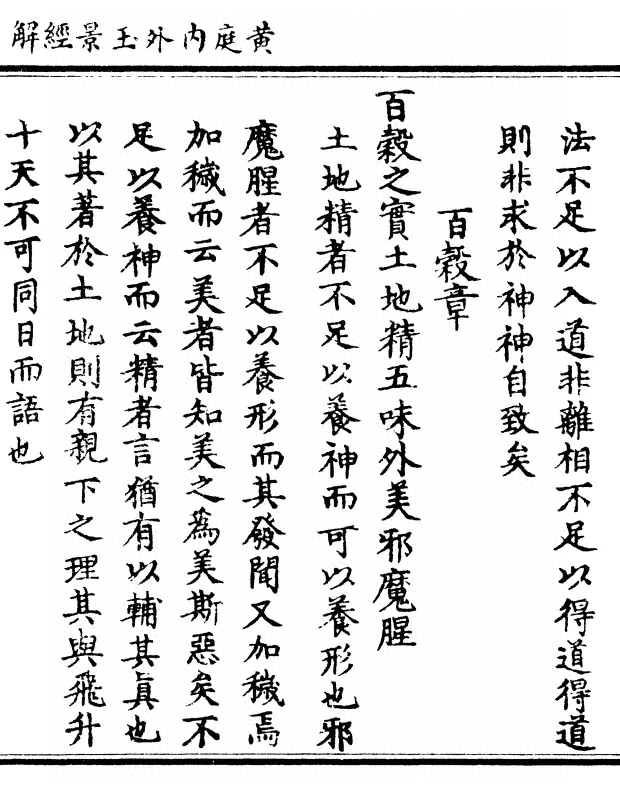 黄庭內外玉景經解
法不足以入道非離相不足以得道得道
則非求於神神自致矣
百穀章
百穀之實土地精五味外美邪魔腥
土地精者不足以養神而可以養形也邪
魔腥者不足以養形而其發聞又加穢焉
加穢而云美者皆知美之為美斯惡矣不
足以養神而云精者言猶有以輔其真也
以其著於土地則有親下之理其與飛升
十天不可同日而語也